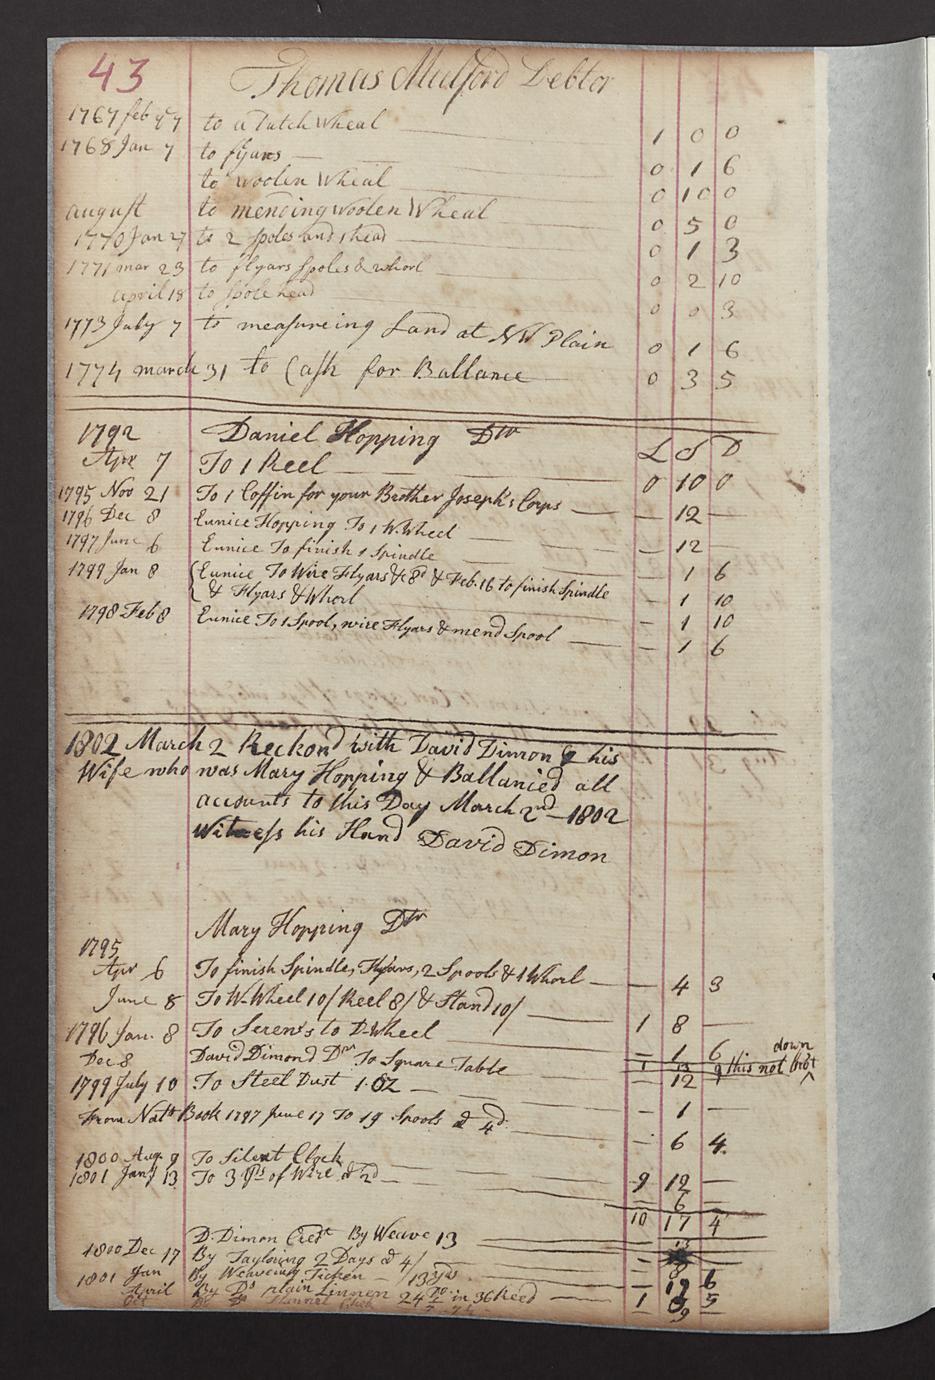 43 Thomas Mulford Debtor
1767 feb 27 to a Dutch Wheal 1 0 0
1768 Jan 7 to flyars 0 1 6
to woolen Wheal 0 10 0
august to mending woolen Wheal 0 5 0
1770 Jan 27 to 2 spoles and 1 head 0 1 3
1771 mar 23 to flyars spoles & whorl 0 2 10
april 18 to spole head 0 0 3
1773 July 7 to measureing Land at NW Plain 0 1 6
1774 march 31 to Cash for Ballance 0 3 5
1792 Daniel Hopping Dtr L S D
Apr 7 To 1 Reel 0 10 0
1795 Nov 21 To 1 Coffin for your Brother Joseph's Corps — 12 —
1796 Dec 8 Eunice Hopping To 1 W. Wheel — 12 —
1797 June 6 Eunice To finish 1 Spindle — 1 6
1799 Jan 8 Eunice To Wire Flyars &c 8d & Feb. 16 to finish Spindle — 1 10
& Flyars & Whorl — 1 10
1798 Feb 8 Eunice To 1 Spool, wire Flyars & mend Spool — 1 6
1802 March 2 Reckond with David Dimon & his
Wife who was Mary Hopping & Ballanced all
accounts to this Day March 2nd — 1802
Witness his Hand David Dimon
Mary Hopping Dtr
1795
Apr 6 To finish Spindle, Flyars, 2 Spools & 1 Whorl — 4 3
June 8 To W. Wheel 10/ Reel 8/ & Stand 10/ 1 8 —
1796 Jan. 8 To Screws to D. Wheel — 1 6
down
1 13 9 this not
Dec 8 David Dimond Dtr To Square Table — 12 —
1799 July 10 To Steel Dust 1. oz — 1 —
From Nath Book 1797 June 17 To 19 Spools @ 4d — 6 4
1800 Aug 9 To Silent Clock 9 12 —
1801 Jany 13 To 3 of Wire @ 2d — 6
10 17 4
D. Dimon Credt By Weave 13
1800 Dec 17 By Tayloring 2 Days @ 4/ — 8
1801 Jan By Weaveing Ticken — 13 yds — 12 6
April By Do plain Linnen 24 in 36 Reed 1 5
Flannel